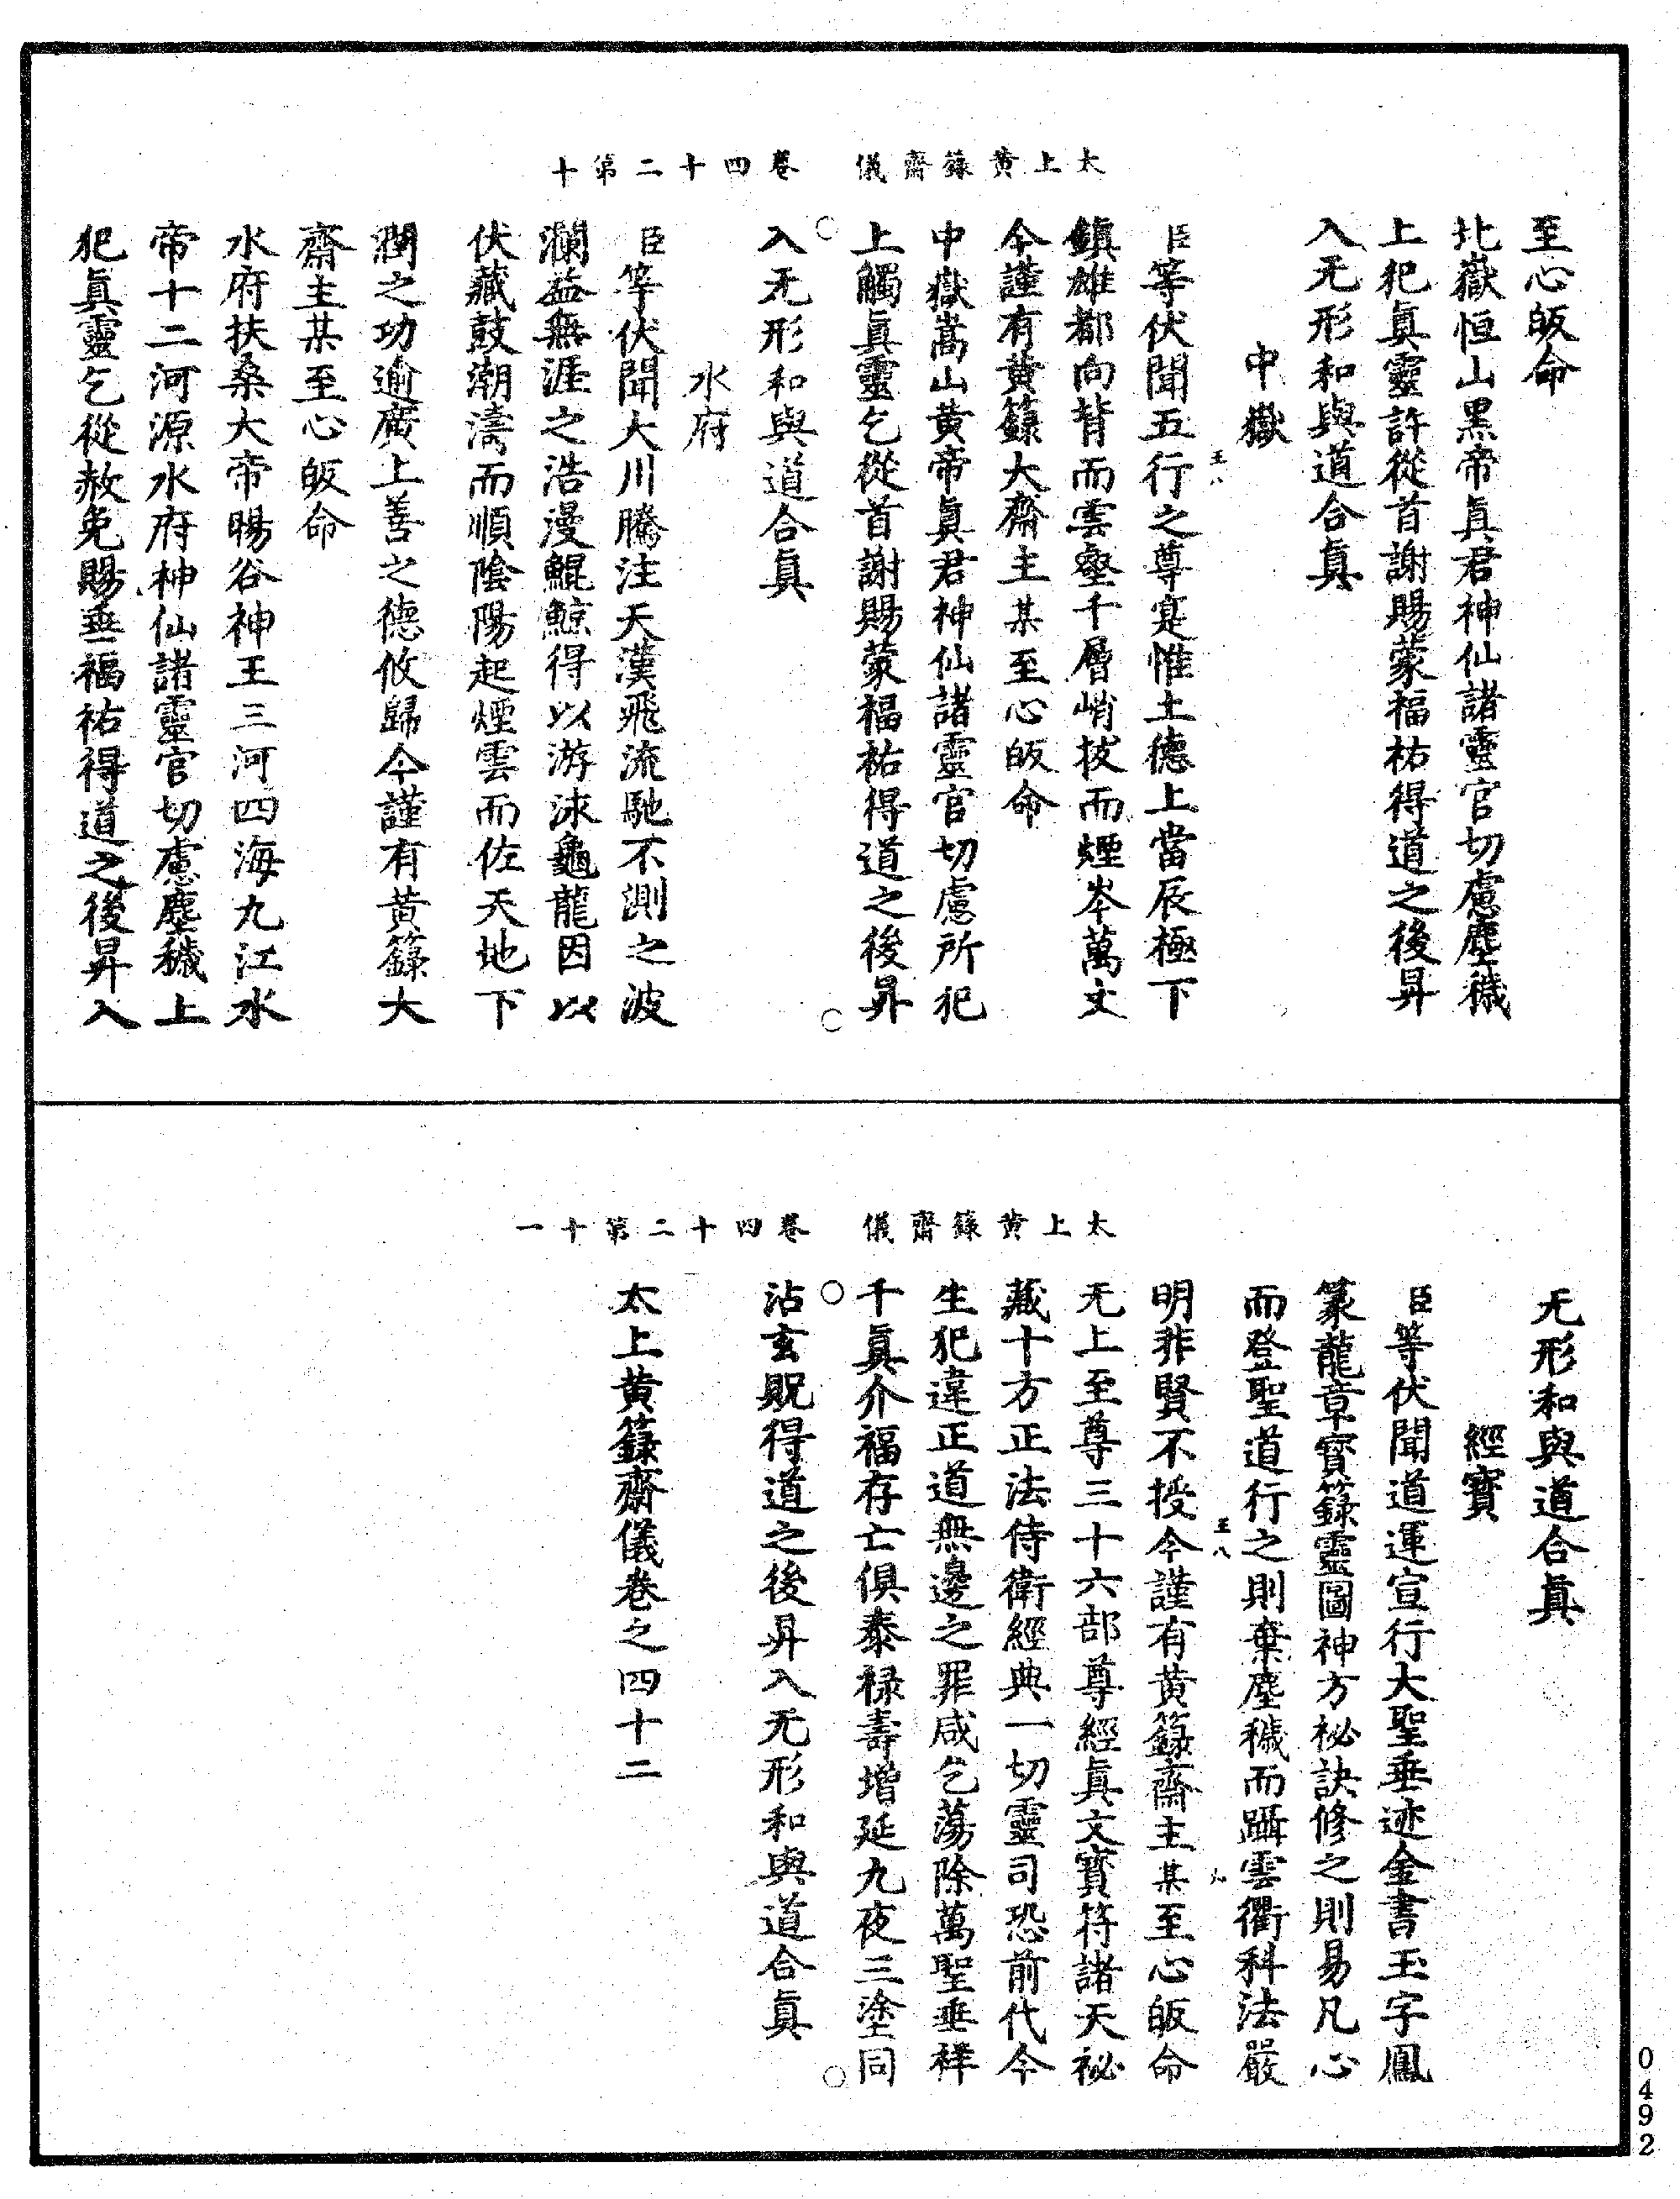 太上黄籙齋儀　卷四十二第十
至心皈命
北嶽恒山黑帝眞君神仙諸靈官切慮塵穢
上犯眞靈許從首謝賜蒙福祐得道之後昇
入无形和與道合眞
中嶽
臣等伏聞五行之尊寔惟土德上當辰極下
鎭雄都向背而雲壑千層峭拔而煙岑萬丈
今謹有黄籙大齋主某至心皈命
中嶽嵩山黄帝眞君神仙諸靈官切慮所犯
上觸眞靈乞從首謝賜蒙福祐得道之後昇
入无形和與道合眞
水府
臣等伏聞大川騰注天漢飛流馳不測之波
瀾益無涯之浩漫鯤鯨得以游泳龜龍因以
伏藏鼓潮濤而順陰陽起煙雲而佐天地下
潤之功逾廣上善之德攸歸今謹有黄籙大
齋主某至心皈命
水府扶桑大帝暘谷神王三河四海九江水
帝十二河源水府神仙諸靈官切慮塵穢上
犯眞靈乞從赦免賜垂福祐得道之後昇入
太上黄籙齋儀　卷四十二第十一
无形和與道合眞
經寶
臣等伏聞道運宣行大聖垂迹金書玉字鳳
篆龍章寶籙靈圖神方祕訣修之則易凡心
而登聖道行之則棄塵穢而躡雲衢科法嚴
明非賢不授今謹有黄籙齋主某至心皈命
无上至尊三十六部尊經眞文寶符諸天祕
藏十方正法侍衛經典一切靈司恐前代今
生犯違正道無邊之罪咸乞蕩除萬聖垂祥
千眞介福存亡俱泰禄壽增延九夜三塗同
沾玄貺得道之後昇入无形和與道合眞
太上黄籙齋儀卷之四十二
0492